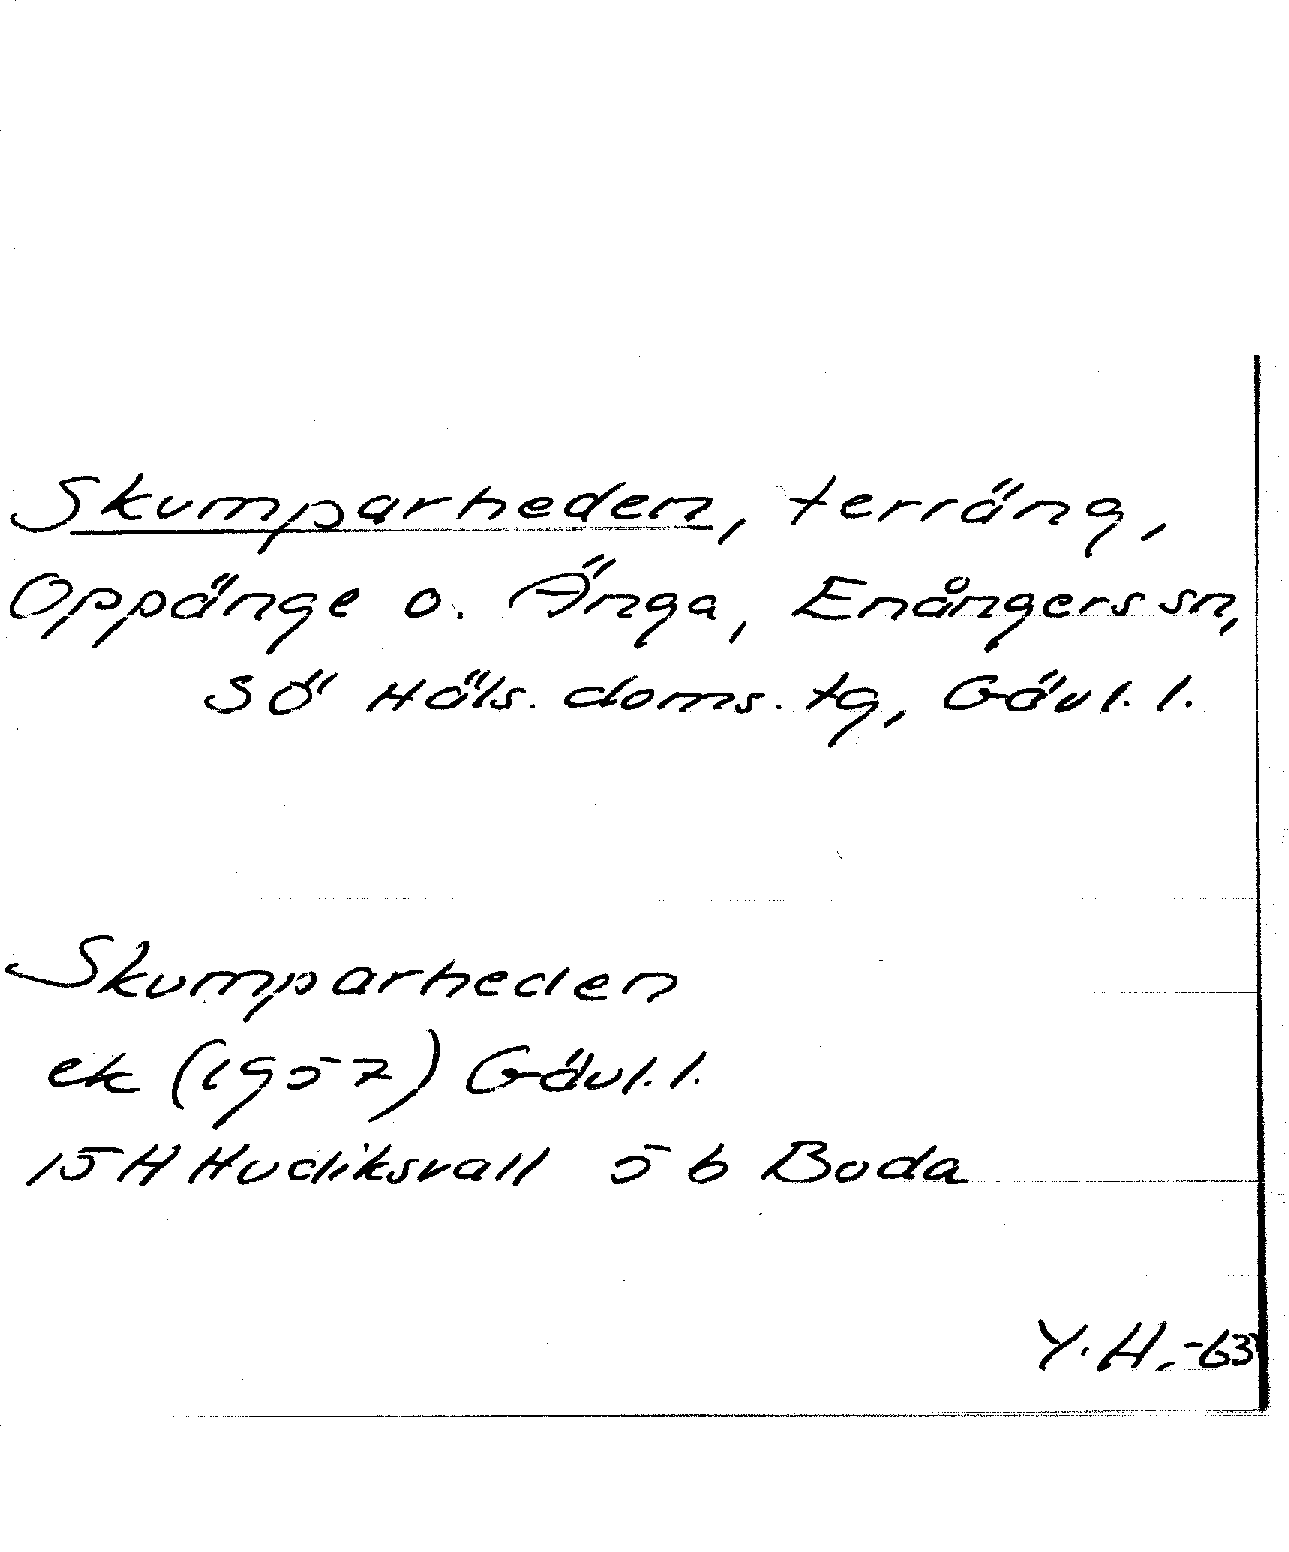 Skumparheden, terräng,
Oppänge o. Änga, Enångers sn,
SÖ Häls. doms. tg, Gävl. l.
Skumparheden
ek (1957) Gävl. l.
15 H Hudiksvall 5 b Boda
Y. H. -63